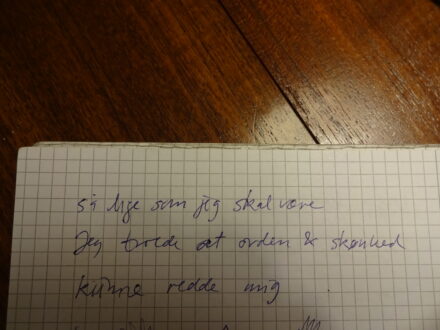 så lige som jeg skal være
Jeg troede at orden & skønhed
kunne redde mig